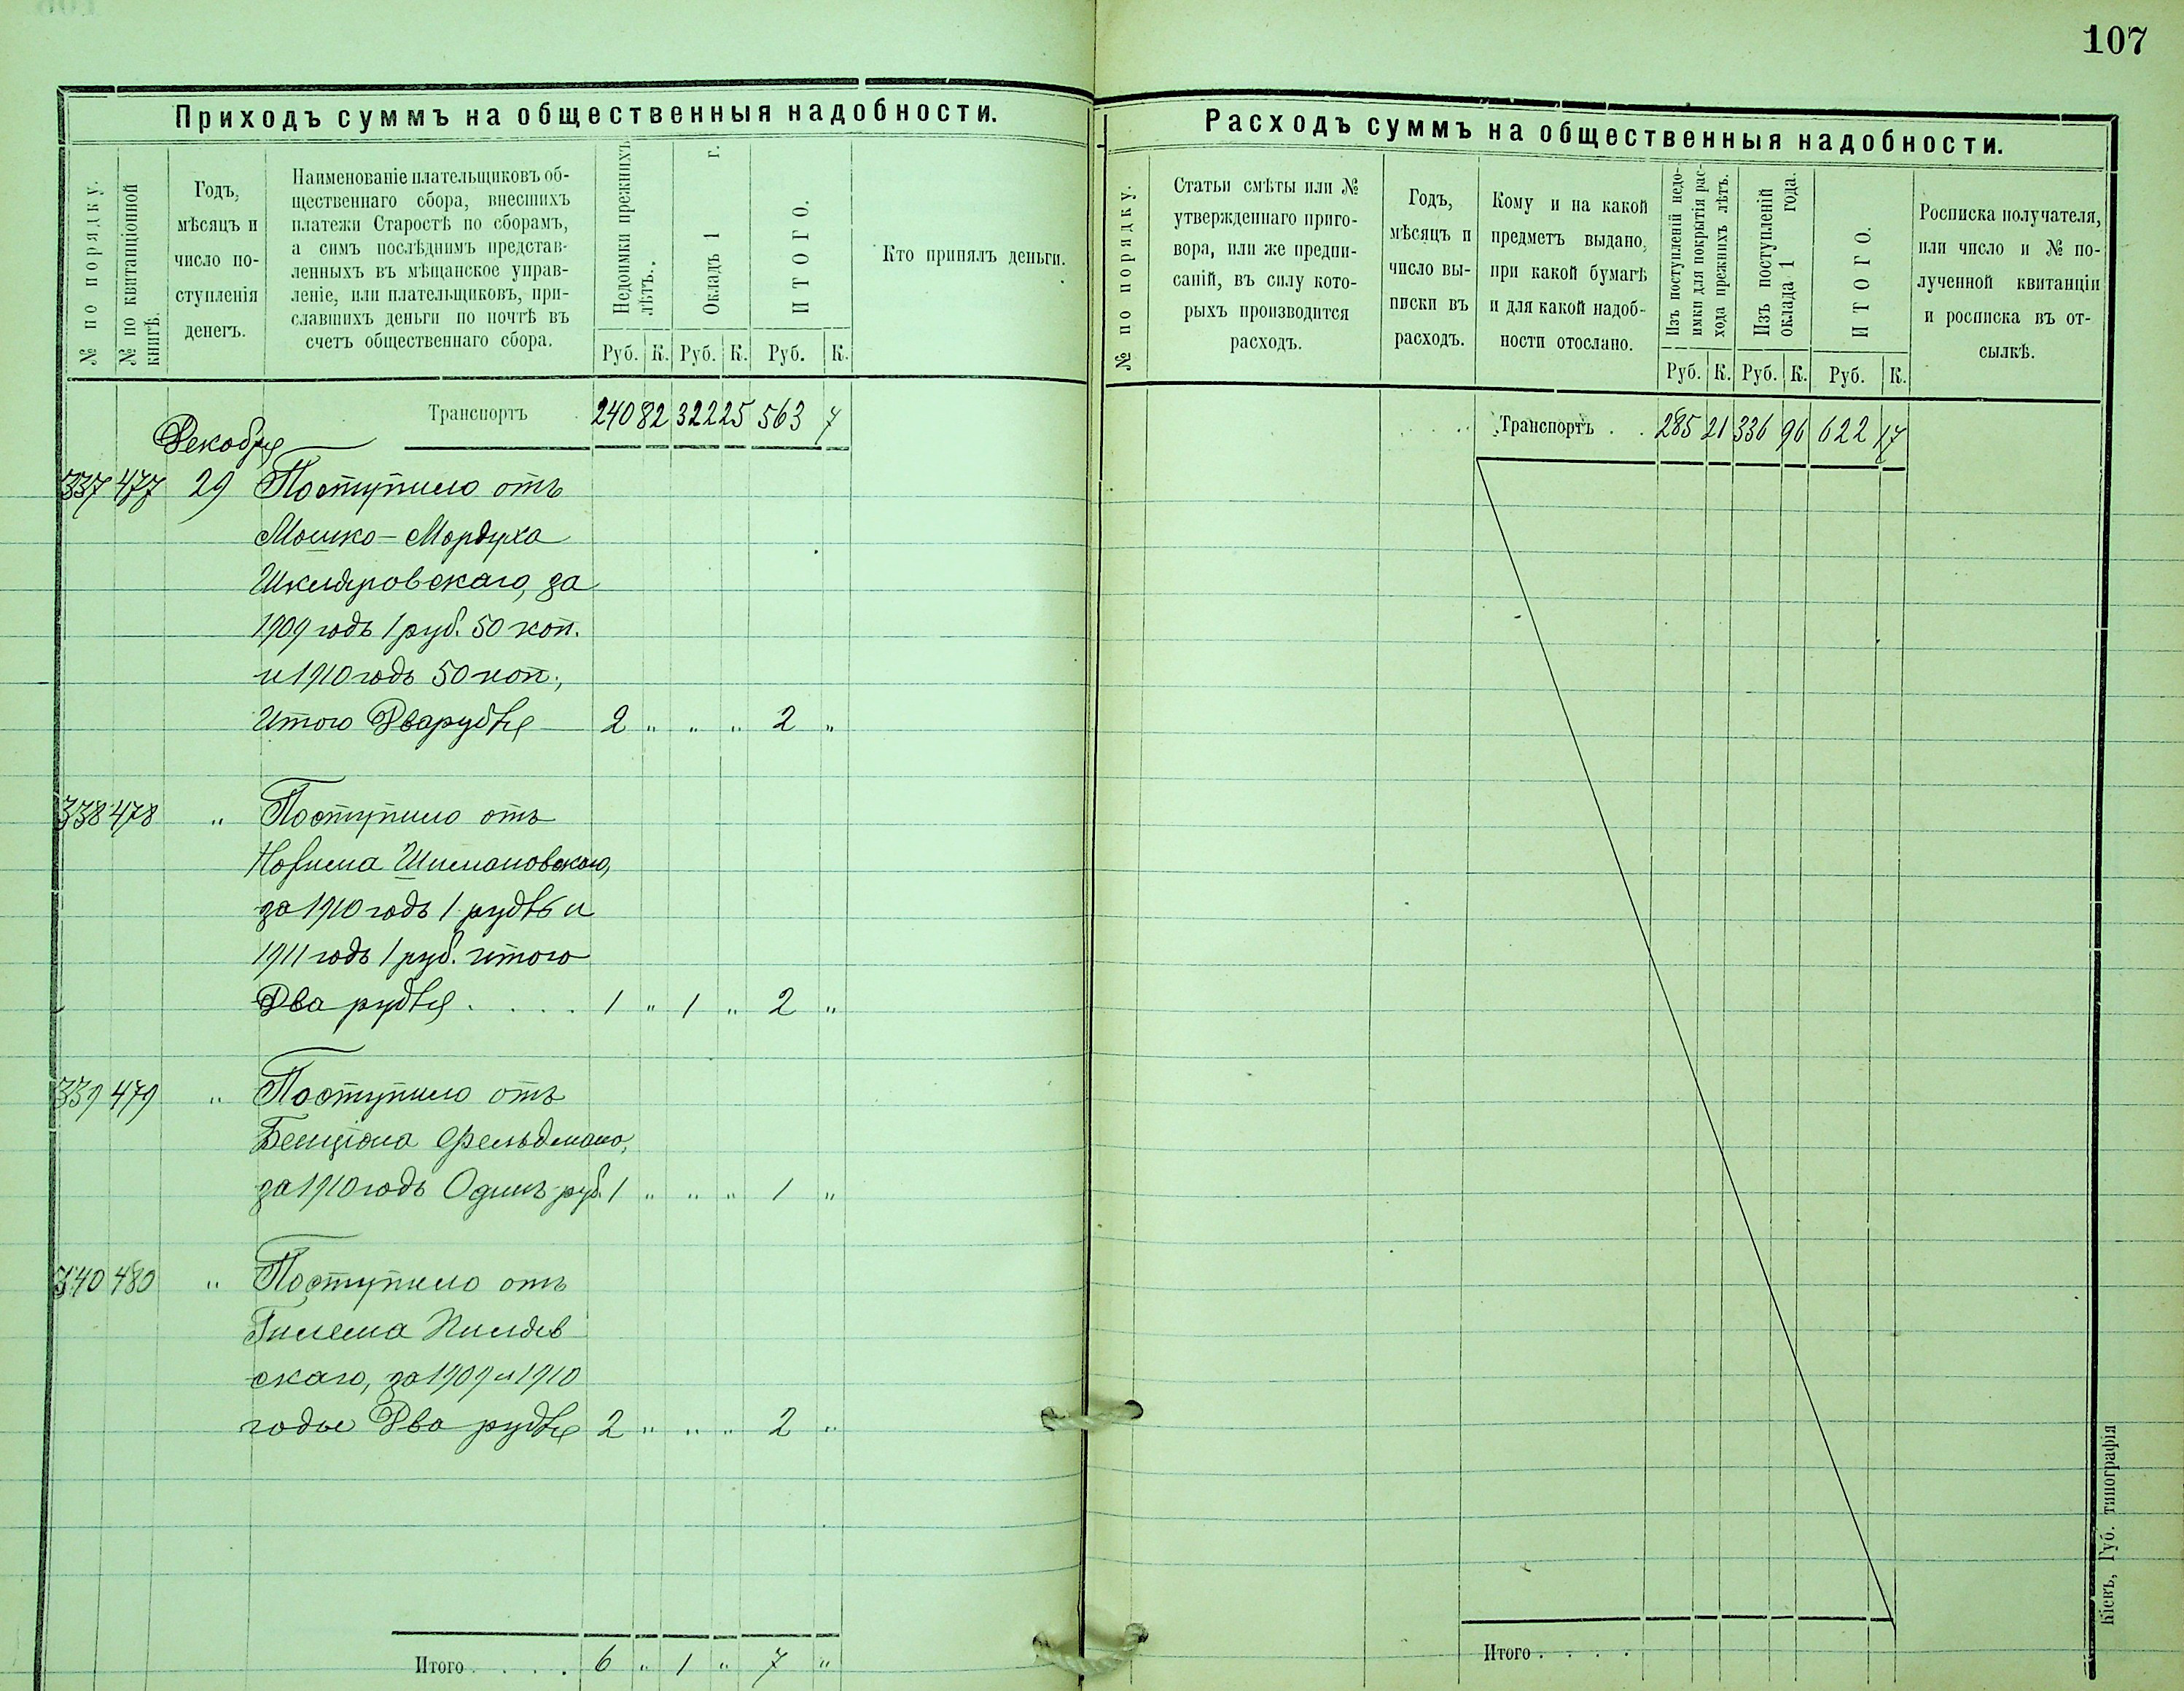 107
Приходъ суммъ на общественныя надобности.
№ по порядку.
№ по квитанціонной
книгѣ.
Годъ,
мѣсяцъ и
число по-
ступленія
денегъ.
Наименованіе плательщиковъ об-
щественнаго сбора, внесшихъ
платежи Старостѣ по сборамъ,
а симъ послѣднимъ представ-
ленныхъ въ мѣщанское управ-
леніе, или плательщиковъ, при-
славшихъ деньги по почтѣ въ
счетъ общественнаго сбора.
Недоимки прежнихъ
лѣтъ.
Окладъ 1 г.
ИТОГО.
Руб. К. Руб. К. Руб. К.
Кто принялъ деньги.
Транспортъ 240 82 322 25 563 7
Декабря
337 477 29 Поступило отъ
Мошко-Мордуха
Шкляровскаго, за
1909 годъ 1 руб. 50 коп.
и 1910 годъ 50 коп.,
Итого Два рубля 2 " " " 2 "
338 478 " Поступило отъ
Шимановскаго,
за 1910 годъ 1 рубль и
1911 годъ 1 руб. итого
Два рубля . . . . 1 " 1 " 2 "
339 479 " Поступило отъ
Бенціона Фельдмана,
за 1910 годъ Одинъ руб. 1 " " " 1 "
340 480 " Поступило отъ
скаго, за 1909 и 1910
годы Два рубля 2 " " " 2 "
Итого . . . . 6 " 1 " 7 "
Расходъ суммъ на общественныя надобности.
№ по порядку.
Статьи смѣты или №
утвержденнаго приго-
вора, или же предпи-
саній, въ силу кото-
рыхъ производится
расходъ.
Годъ,
мѣсяцъ и
число вы-
писки въ
расходъ.
Кому и на какой
предметъ выдано,
при какой бумагѣ
и для какой надоб-
ности отослано.
Изъ поступленій недо-
имки для покрытія рас-
хода прежнихъ лѣтъ.
Изъ поступленій
оклада 1 года.
ИТОГО.
Руб. К. Руб. К. Руб. К.
Росписка получателя,
или число и № по-
лученной квитанціи
и росписка въ от-
сылкѣ.
Транспортъ . . 285 21 336 96 622 17
Итого . . . .
Кіевъ, Губ. типографія